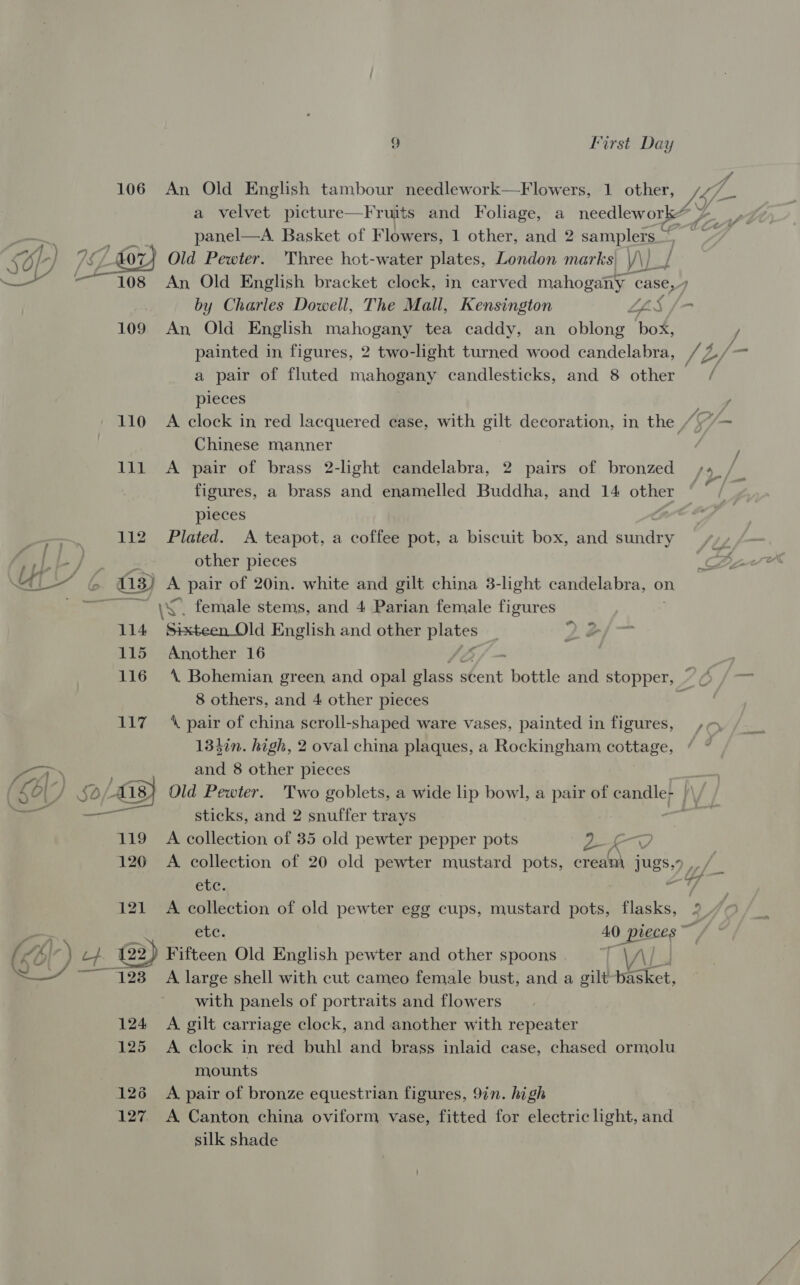 9 First Day
106 An Old English tambour needlework—Flowers, 1 other,
a velvet picture—Fruits and Foliage, a needlework
panel—A Basket of Flowers, 1 other, and 2 samplers
107 Old Pewter. Three hot-water plates, London marks
108 An Old English bracket clock, in carved mahogany case,
by Charles Dowell, The Mall, Kensington
109 An Old English mahogany tea caddy, an oblong box,
painted in figures, 2 two-light turned wood candelabra,
a pair of fluted mahogany candlesticks, and 8 other
pieces
110 A clock in red lacquered case, with gilt decoration, in the
Chinese manner
111 A pair of brass 2-light candelabra, 2 pairs of bronzed
figures, a brass and enamelled Buddha, and 14 other
pieces
112 Plated. A teapot, a coffee pot, a biscuit box, and sundry
other pieces
113 A pair of 20in. white and gilt china 3-light candelabra, on
female stems, and 4 Parian female figures
114 Sixteen Old English and other plates
115 Another 16
116 A Bohemian green and opal glass scent bottle and stopper,
8 others, and 4 other pieces
117 A pair of china scroll-shaped ware vases, painted in figures,
13½in. high, 2 oval china plaques, a Rockingham cottage,
and 8 other pieces
118 Old Pewter. Two goblets, a wide lip bowl, a pair of candle-
sticks, and 2 snuffer trays
119 A collection of 35 old pewter pepper pots
120 A collection of 20 old pewter mustard pots, cream jugs,
etc.
121 A collection of old pewter egg cups, mustard pots, flasks,
etc. 40 pieces
122 Fifteen Old English pewter and other spoons
123 A large shell with cut cameo female bust, and a gilt basket,
with panels of portraits and flowers
124 A gilt carriage clock, and another with repeater
125 A clock in red buhl and brass inlaid case, chased ormolu
mounts
126 A pair of bronze equestrian figures, 9in. high
127 A Canton china oviform vase, fitted for electric light, and
silk shade